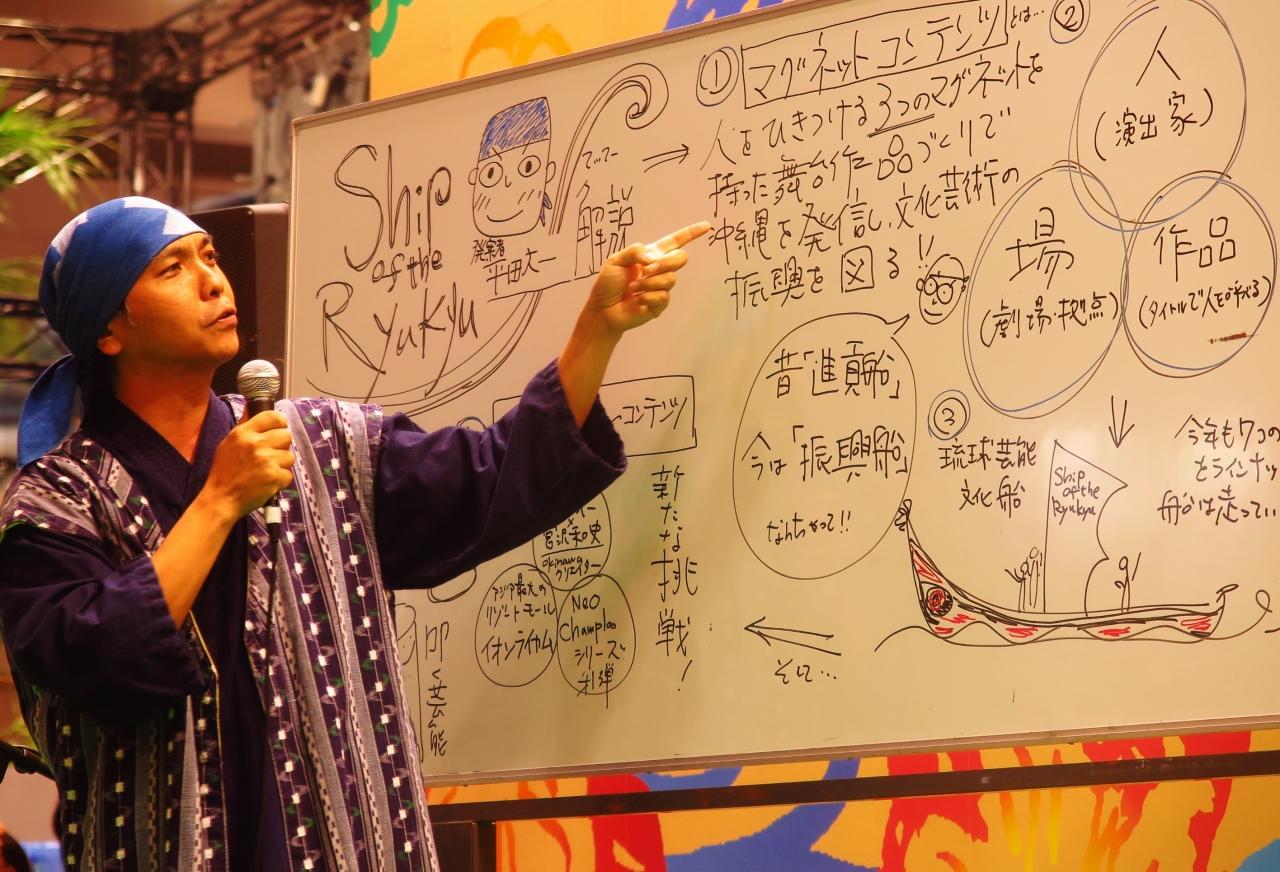 Ship
of the
Ryukyu
発案者
平田大一
てってー
解説
① マグネットコンテンツとは…
人をひきつける3つのマグネットを
持った舞台作品づくりで
沖縄を発信し、文化芸術の
振興を図る!!
②
人
(演出家)
場
(劇場・拠点)
作品
(タイトルで人を呼べる)
昔「進貢船」
今は「振興船」
なんちゃって!!
③
琉球芸能
文化船
Ship
of the
Ryukyu
今年も7つの
をラインナッ
船は走ってい
そして…
コンテンツ
新たな挑戦!
宮沢和史
okinawa
クリエイター
アジア最大の
リゾートモール
イオンライカム
Neo
Champloo
シリーズ
第1弾
叩く芸能